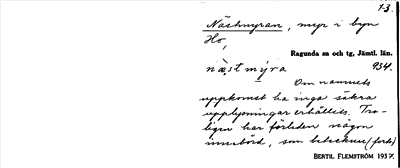 1-3.
Nästmyran, myr i byn
Ho,
Ragunda sn och tg, Jämtl. län.
næst mýra 934.
Om namnets
uppkomst ha inga säkra
upplysningar erhållits. Tro-
ligen har förleden någon
innebörd, som betecknar (forts)
BERTIL FLEMSTRÖM 1937.